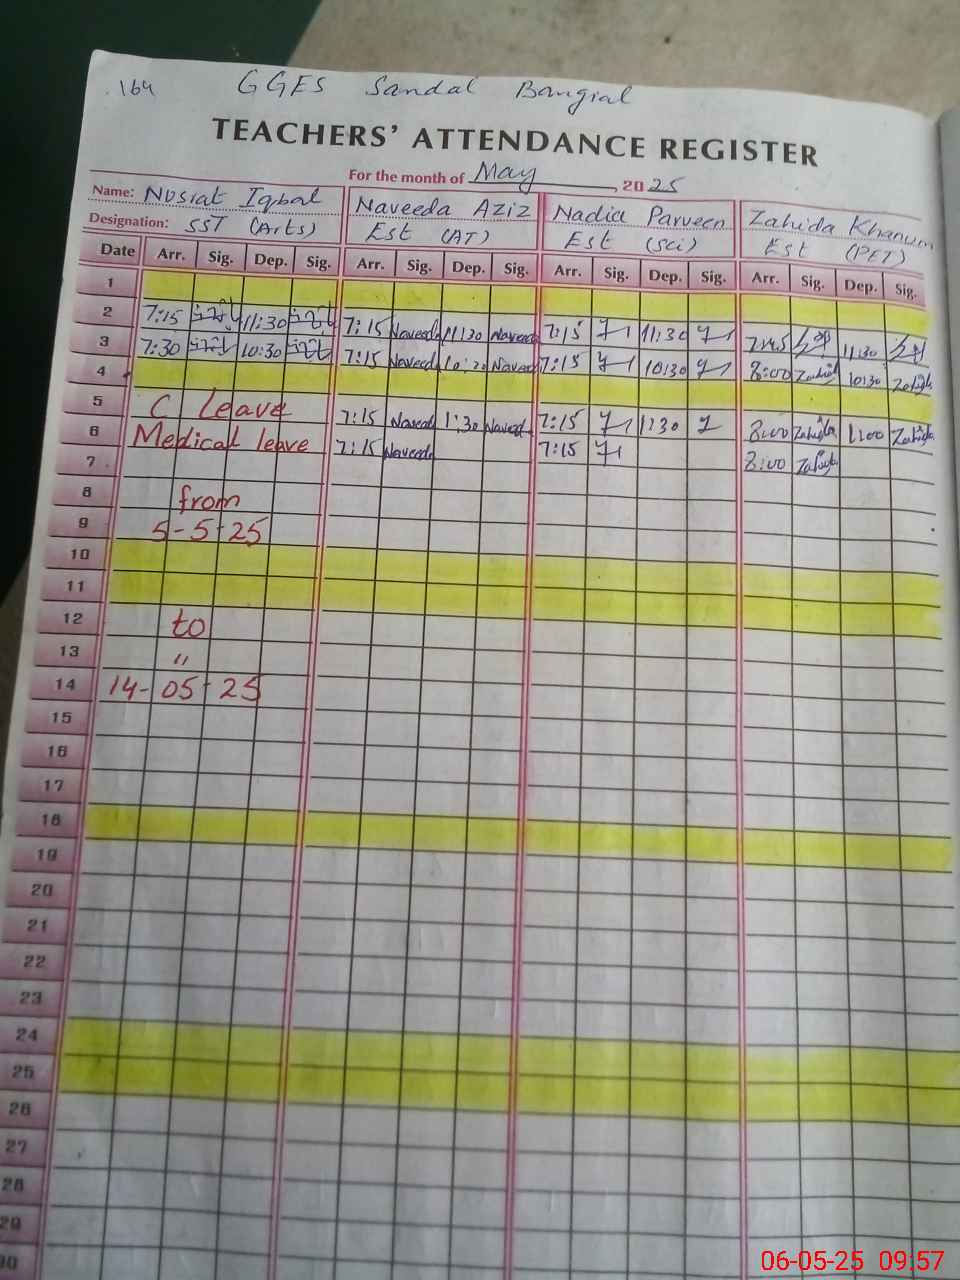 164 GGES Sandal Bangial
TEACHERS' ATTENDANCE REGISTER
For the month of May, 2025
Name: Nusrat Iqbal Naveeda Aziz Nadia Parveen Zahida Khanum
Designation: SST (Arts) Est (AT) Est (Sci) Est (PET)
Date Arr. Sig. Dep. Sig. Arr. Sig. Dep. Sig. Arr. Sig. Dep. Sig. Arr. Sig. Dep. Sig.
1
2 7:15 11:30 7:15 Naveeda 11:30 Naveeda 7:15 11:30 7:45 11:30
3 7:30 10:30 7:15 Naveeda 10:30 Naveed 7:15 10:30 8:00 Zahida 10:30 Zahida
4
5 C Leave 7:15 Naveed 1:30 Naveed 7:15 1:30 8:00 Zahida 1:00 Zahida
6 Medical leave 7:15 Naveeda 7:15 8:00 Zahida
7
8 from
9 5-5-25
10
11
12 to
13 "
14 14-05-25
15
16
17
18
19
20
21
22
23
24
25
26
27
28
29
30
06-05-25 09:57